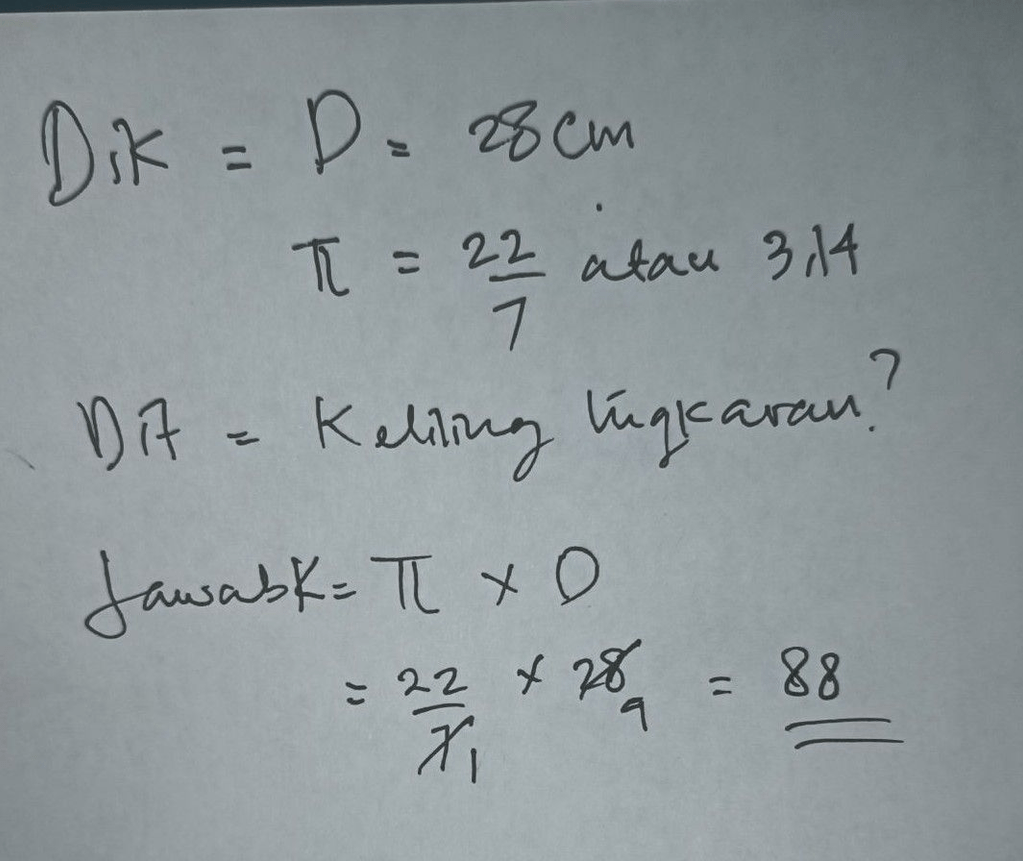 Dik = D = 28 cm
π = 22/7 atau 3,14
Dit = Keliling lingkaran?
Jawab K = π x D
= 22/7 1 x 28 4 = 88